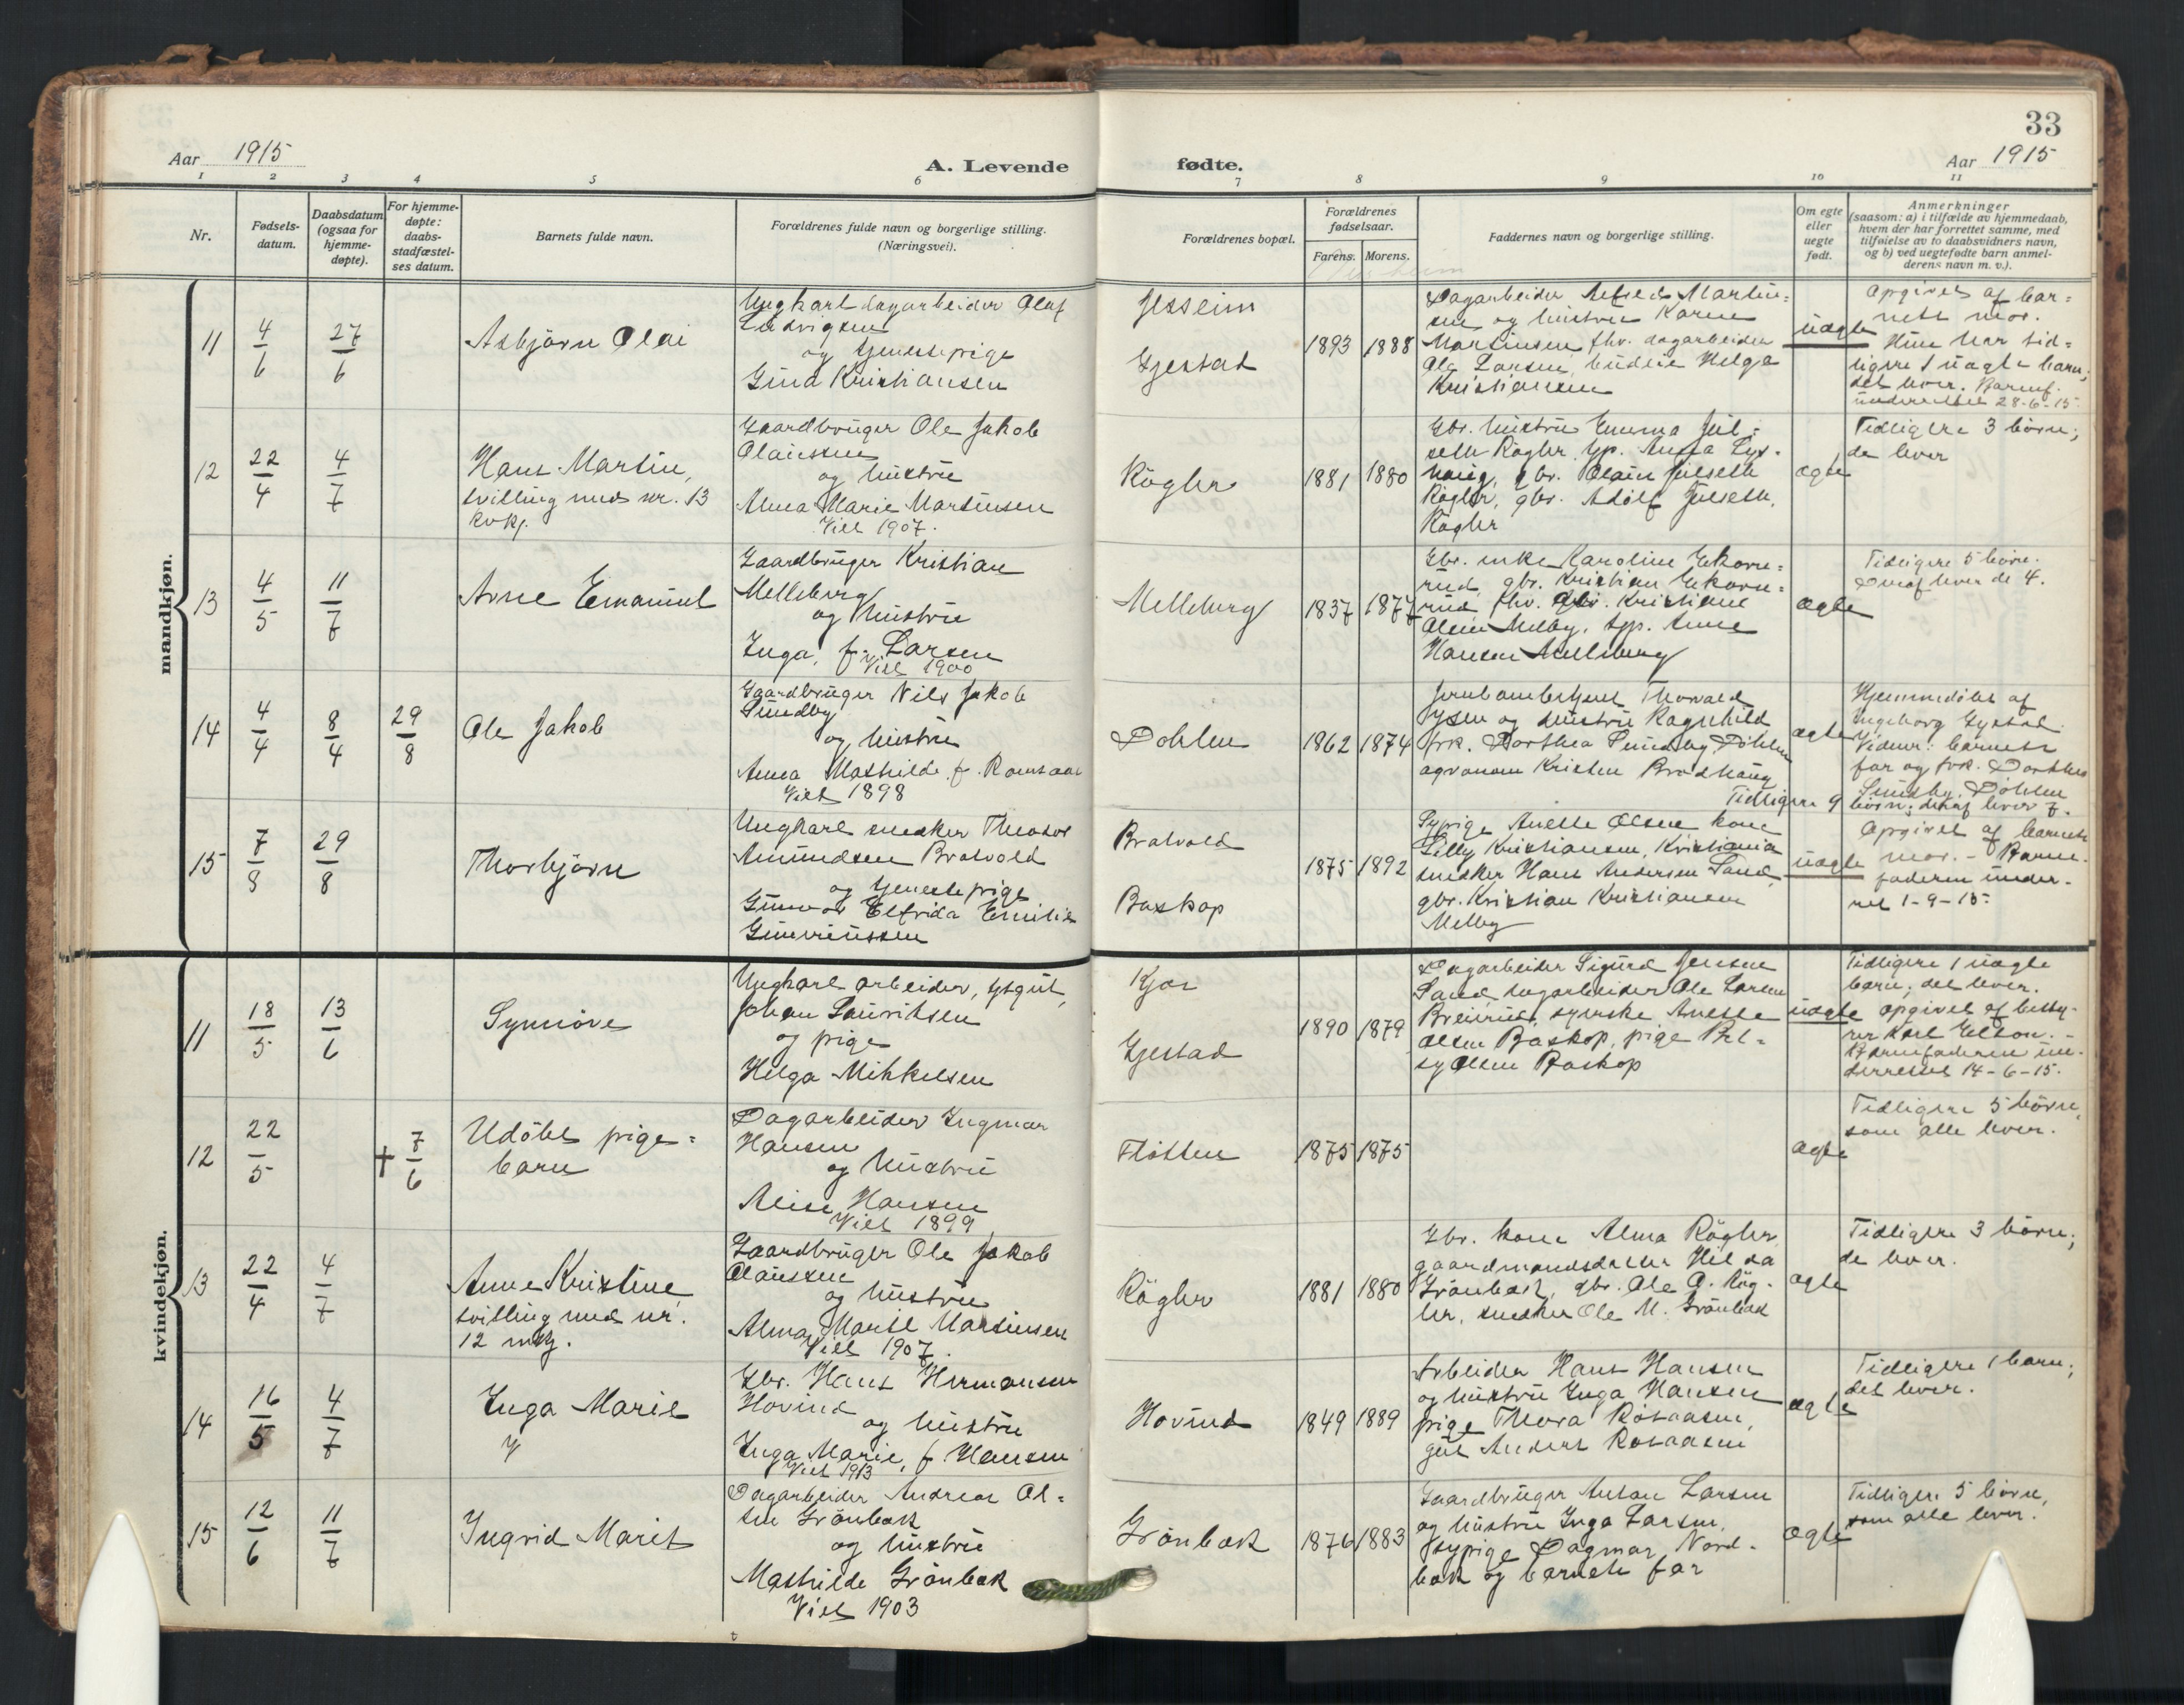 33
Aar 1915
A. Levende
fødte.
Aar 1915
1 2 3 4 5 6 7 8 9 10 11
Nr.
Fødsels-
datum.
Daabsdatum
(ogsaa for
hjemme-
døpte).
For hjemme-
døpte:
daabs-
stadfæstel-
ses datum.
Barnets fulde navn.
Forældrenes fulde navn og borgerlige stilling.
(Næringsvei).
Forældrenes bopæl.
Forældrenes
fødselsaar.
Farens. Morens.
Faddernes navn og borgerlige stilling.
Om egte
eller
uegte
født.
Anmerkninger
(saasom: a) i tilfælde av hjemmedaab,
hvem der har forrettet samme, med
tilføielse av to daabsvidners navn,
og b) ved uegtefødte barn anmel-
derens navn m. v.).
mandkjøn.
11
4/6
27/6
Asbjørn Olai
Ungkarl dagarbeider Olaf
Ludvigsen
og tjenestepige
Gina Kristiansen
Jesseim
Gjestad
1893 1888
Dagarbeider Alfred Martin-
sen og hustru Karen
Martinsen fhv. dagarbeider
Ole Larsen, budeie Helga
Kristiansen
uægte
Opgivet af bar-
nets mor.
Hun har tid-
ligere 1 uægte barn;
det lever. Barnef.
underrettet 28-6-15.
12
22/4
4/7
Hans Martin,
tvilling med nr. 13
kvkj.
Gaardbruger Ole Jakob
Olaussen
og hustru
Alma Marie Martinsen
Viet 1907.
Rögler
1881 1880
Gbr. hustru Emma Jul-
seth Rögler, gbr. Olaus Julseth
Rögler, gbr. Adolf Julseth,
Rögler
ægte
Tidligere 3 börn;
de lever
13
4/5
11/7
Arne Emanuel
Gaardbruger Kristian
Melleburg
og hustru
Inga, f. Larsen
Viet 1900
Melleburg
1837 1877
Gbr. enke Karoline Ekorn-
rud, gbr. Kristian Ekorn-
rud, fhv. gbr. Kristiane
Olsen Melby, Anne
Hansen Melleburg
ægte
Tidligere 5 börn.
Deraf lever de 4.
14
4/4
8/4
29/8
Ole Jakob
Gaardbruger Nils Jakob
Sundby
og hustru
Anna Mathilde f. Ramsaas
Viet 1898
Döhlen
1862 1874
Thorvald
og hustru Ragnhild
frk. Dorthea Sundby, Döhlen
agronom Kristen Brodshaug
ægte
Hjemmedöbt af
Ingeborg Gystad.
Vidner: barnets
far og frk. Dorthea
Sundby, Döhlen
Tidligere 9 börn; deraf lever 7.
15
7/8
29/8
Thorbjørn
Ungkarl snedker Theodor
Amundsen Bratvold
og tjenestepige
Gunvor Elfrida Emilie
Guneriussen
Bratvold
Baskop
1875 1892
Sypige Anette Olsen kone
Lilly Kristiansen, Kristiania
snedker Hans Andersen Sand,
gbr. Kristian Kristiansen
Melby
uægte
Opgivet af barnets
mor. - Barne-
faderen under-
ret 1-9-15.
kvindekjøn.
11
18/5
13/6
Synnöve
Ungkarl arbeider,
Johan Lauritsen
og pige
Helga Mikkelsen
Kjos
Gjestad
1890 1879
Dagarbeider Sigurd Jensen
Sand, dagarbeider Ole Larsen
Breirud, syerske Anette
Olsen Baskop, pige Bet-
sy Olsen Baskop
uægte
Tidligere 1 uægte
barn; det lever.
Opgivet af besty-
rer Karl Elton. -
Barnefaderen un-
derrettet 14-6-15.
12
22/5
† 7/6
Udöbt pige-
barn
Dagarbeider Ingmar
Hansen
og hustru
Alise Hansen
Viet 1899
Fløtten
1875 1875
ægte
Tidligere 5 börn,
som alle lever.
13
22/4
4/7
Anne Kristine,
tvilling med nr.
12 mkj.
Gaardbruger Ole Jakob
Olaussen
og hustru
Alma Marie Martinsen
Viet 1907.
Rögler
1881 1880
Gbr. kone Alma Rögler,
gaardmandsdatter Hilda
Grönbæk, gbr. Ole A. Rög-
ler, snedker Ole M. Grönbæk
ægte
Tidligere 3 börn;
de lever.
14
16/5
4/7
Inga Marie
Gbr. Hans Hermansen
Hovind
og hustru
Inga Marie, f. Hansen
Viet 1913
Hovind
1849 1889
Arbeider Hans Hansen
og hustru Inga Hansen
pige Thora Rosaasen,
gut Anders Rosaasen
ægte
Tidligere 1 barn;
det lever.
15
12/6
11/7
Ingrid Marit
Dagarbeider Andreas Ol-
sen Grönbæk
og hustru
Mathilde Grönbæk
Viet 1903
Grönbæk
1876 1883
Gaardbruger Anton Larsen
og hustru Inga Larsen,
sypige Dagmar Nord-
bæk og barnets far
ægte
Tidligere 5 börn,
som alle lever.